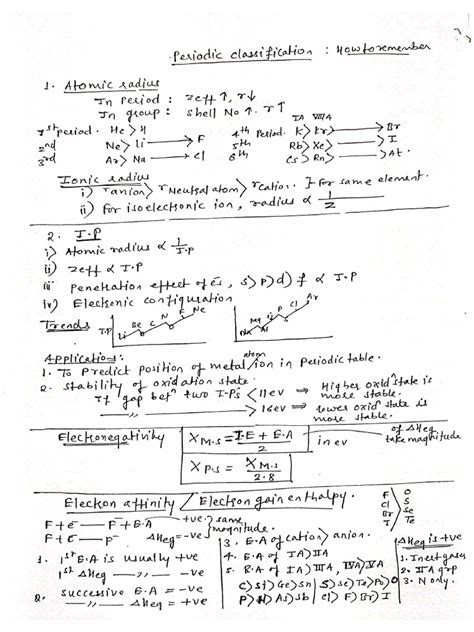 Periodic classification : How to remember
1. Atomic radius
In Period : Zeff ↑, r↓
In group : shell No ↑, r ↑
IA VIIIA
1st period. He > H
4th Period. K > Kr → Br
2nd Ne > Li → F
5th Rb > Xe → I
3rd Ar > Na → Cl
6th Cs > Rn → At.
Ionic radius
i) r anion > r Neutral atom > r cation. } For same element.
ii) For isoelectronic ion, radius ∝ 1/Z
2. I.P
i) Atomic radius ∝ 1/I.P
ii) Zeff ∝ I.P
iii Penetration effect of es, s > p > d > f ∝ I.P
iv) Electronic configuration
Trends I.P Li Be B C N O F Ne
Na Mg Al Si P S Cl Ar
Applications:
1. To Predict position of metal atom/ion in Periodic table.
2. stability of oxidation state.
If 'gap betn two I.Ps < 11 ev ⇒ Higher oxidn state is more stable.
—— 〃 —— > 16 ev ⇒ lower oxidn state is more stable.
Electronegativity
X M.S = I.E + E.A / 2 in ev
of ΔHeg take magnitude
X P.S = X M.S / 2.8
Electron affinity / Electron gain enthalpy.
F + e → F + E.A +ve } same magnitude.
F + e → F ΔHeg = -ve
F > O
Cl S
Br Se
I Te
1. 1st E.A is usually +ve
1st ΔHeg — 〃 — -ve
2. successive E.A = -ve
ΔHeg = +ve
3. E.A of cation > anion
4. E.A of IA > IIA
5. E.A of IA > IIIA, IVA > VA
C > Si > Ge > Sn
S > Se > Te > Po > O
P > N > As > Sb
Cl > F > Br > I
ΔHeg is +ve
1. Inert gases
2. IIA grp
3. N only.